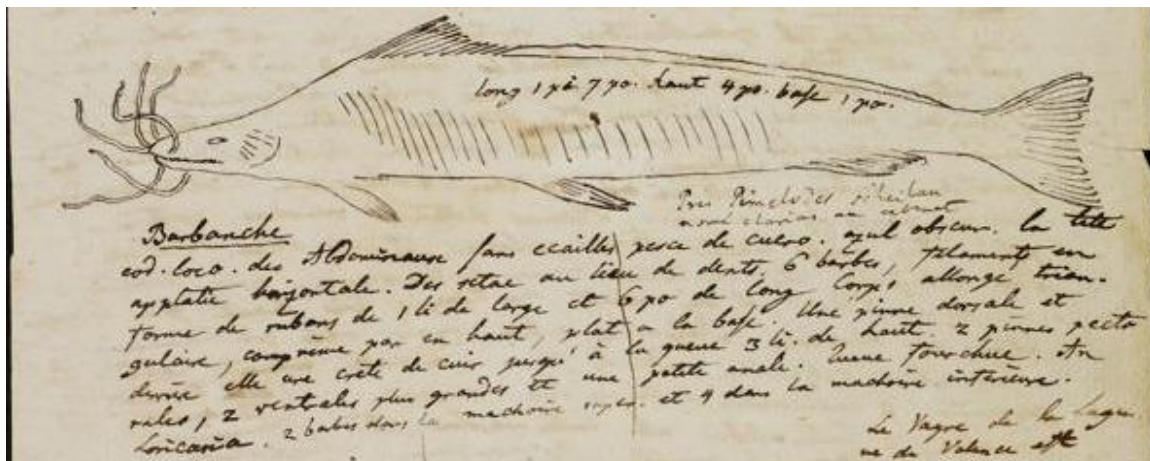 long 1 pi 7 po. haut 4 po. base 1 po.
Pres Pimelodes
nomé clarias au cabinet
Barbanche
cod. loco. des Abdominaux sans ecailles pesce de cuero. azul obscur. la tête
applatie horizontale. Des setae au lieu de dents. 6 barbes, filaments en
forme de rubans de 1 li de large et 6 po de long Corps allongé trian-
gulaire, comprimé par en haut, plat a la base. Une pinne dorsale et
derrière elle une crete de cuir jusqu'à la queue 3 li. de haut. 2 pinnes pecto
rales, 2 ventrales plus grandes et une petite anale. Queue fourchue. An
Loricaria. 2 barbes dans la machoire super. et 4 dans la machoire inférieure.
Le Vagre de la Lagu
ne de Valence est